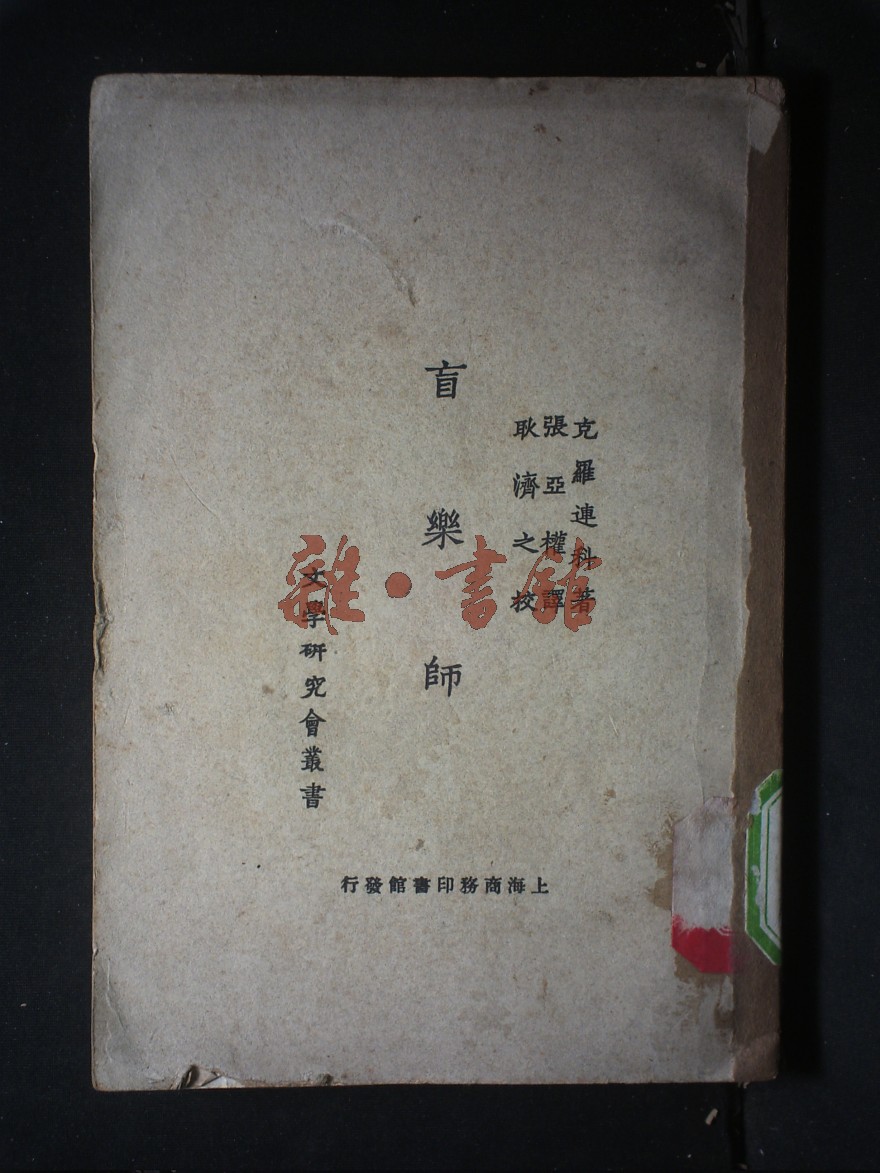 克羅連科著
張亞權譯
耿濟之校
盲樂師
文學研究會叢書
上海商務印書館發行
雜·書館